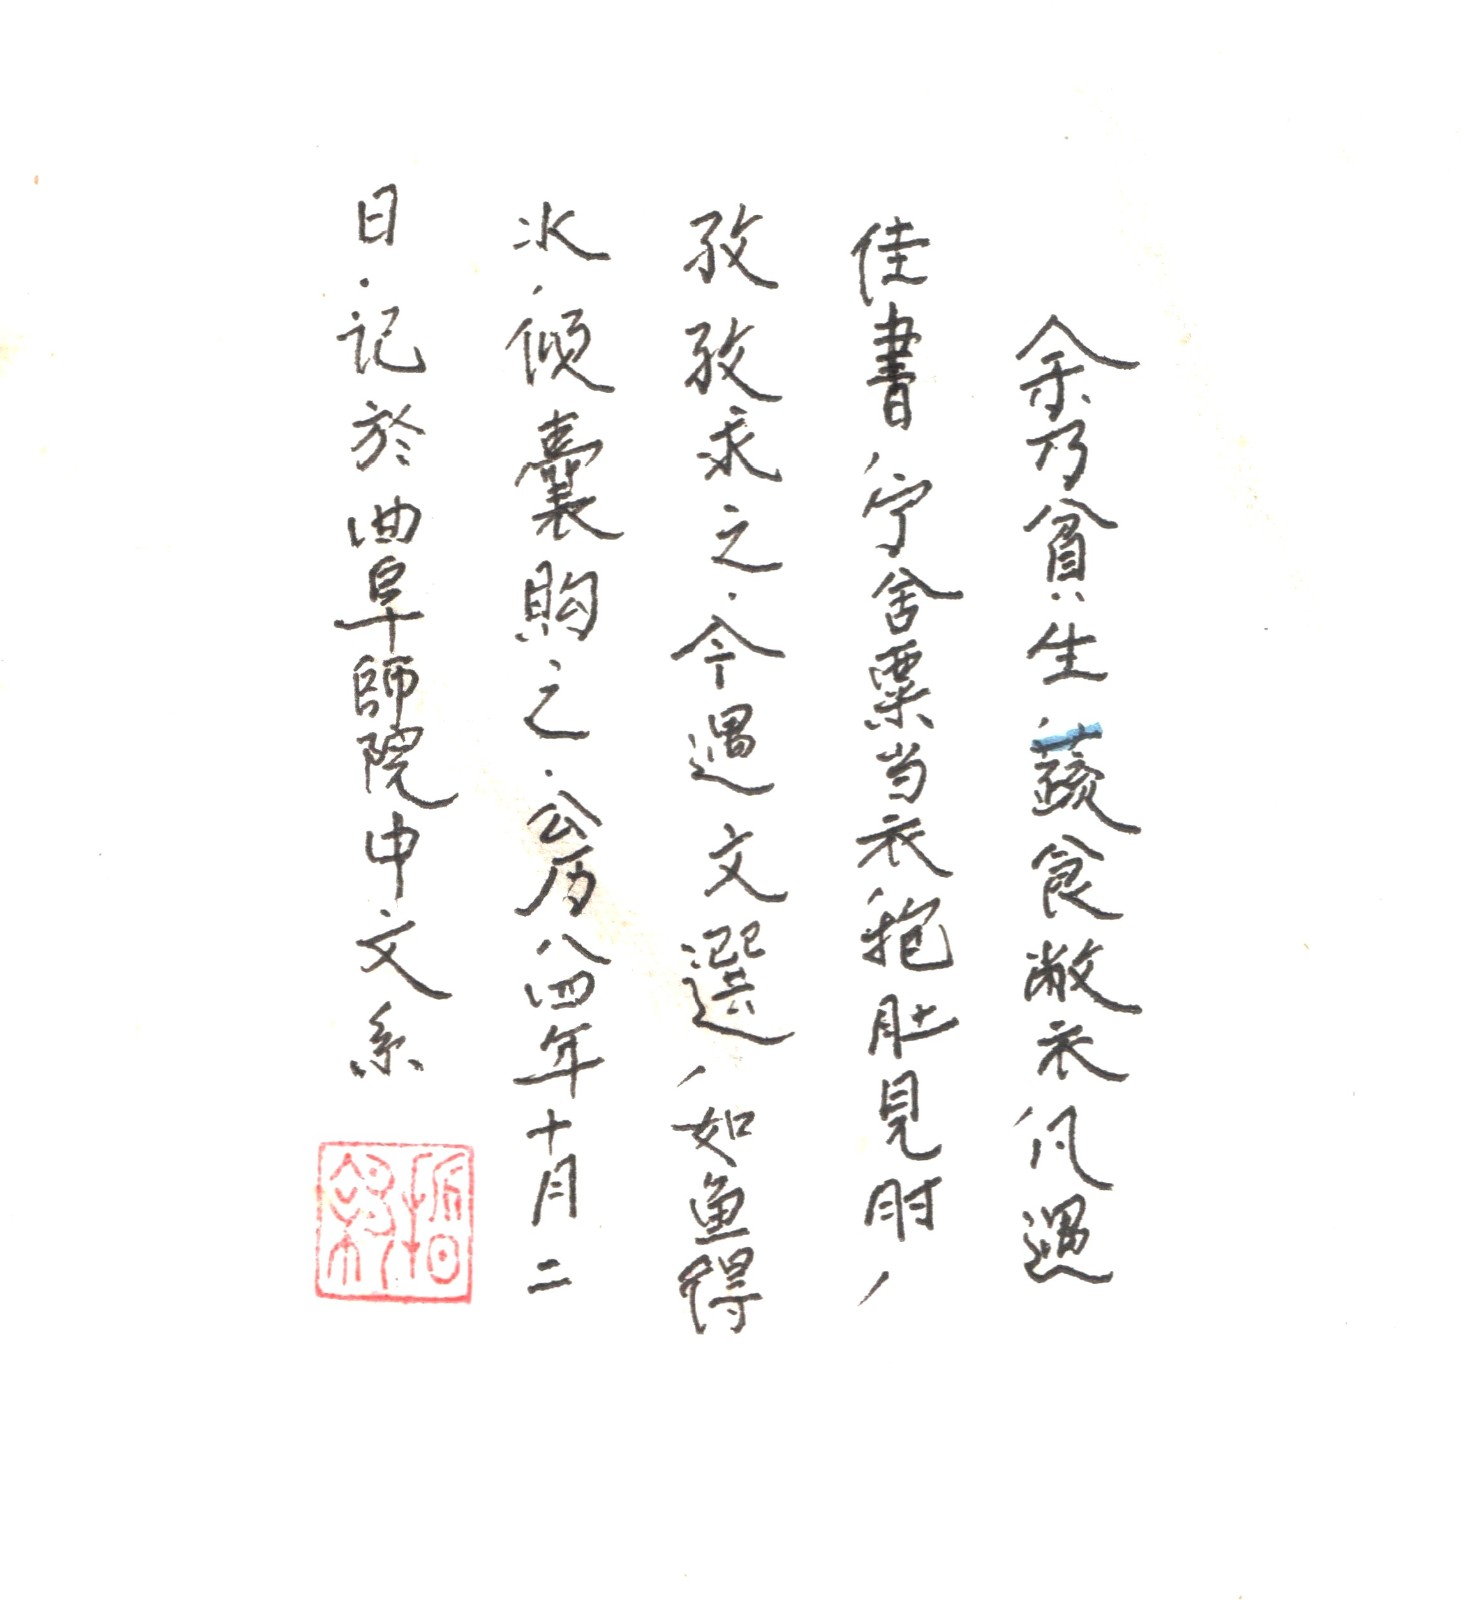 余乃貧生，蔬食敝衣，凡遇
佳書，宁舍粟当衣，肚見肘，
孜孜求之．今遇文選，如鱼得
水，傾囊購之．公历八四年十月二
日．记於曲阜師院中文系